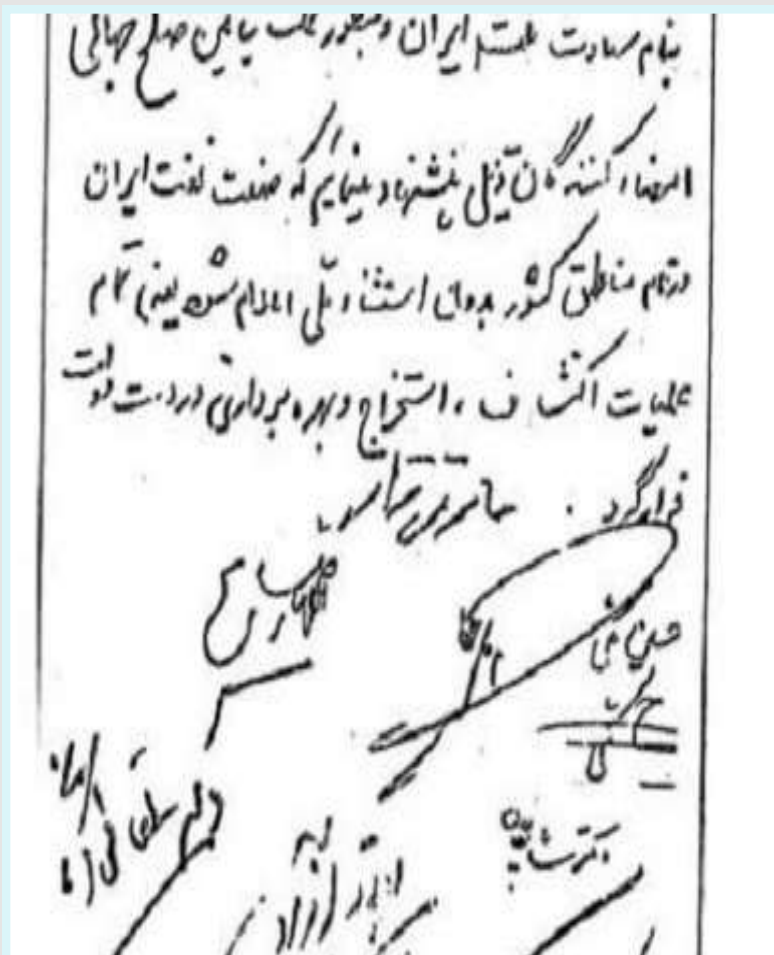 بنام سعادت ملت ایران و بمنظور کمک بتامین صلح جهانی
امضاء کنندگان ذیل پیشنهاد مینمایم که صنعت نفت ایران
در تمام مناطق کشور بدون استثناء ملی اعلام شود یعنی تمام
عملیات اکتشاف ، استخراج و بهره برداری در دست دولت
قرار گیرد .
اللهیار صالح
دکتر شایگان
آزاد